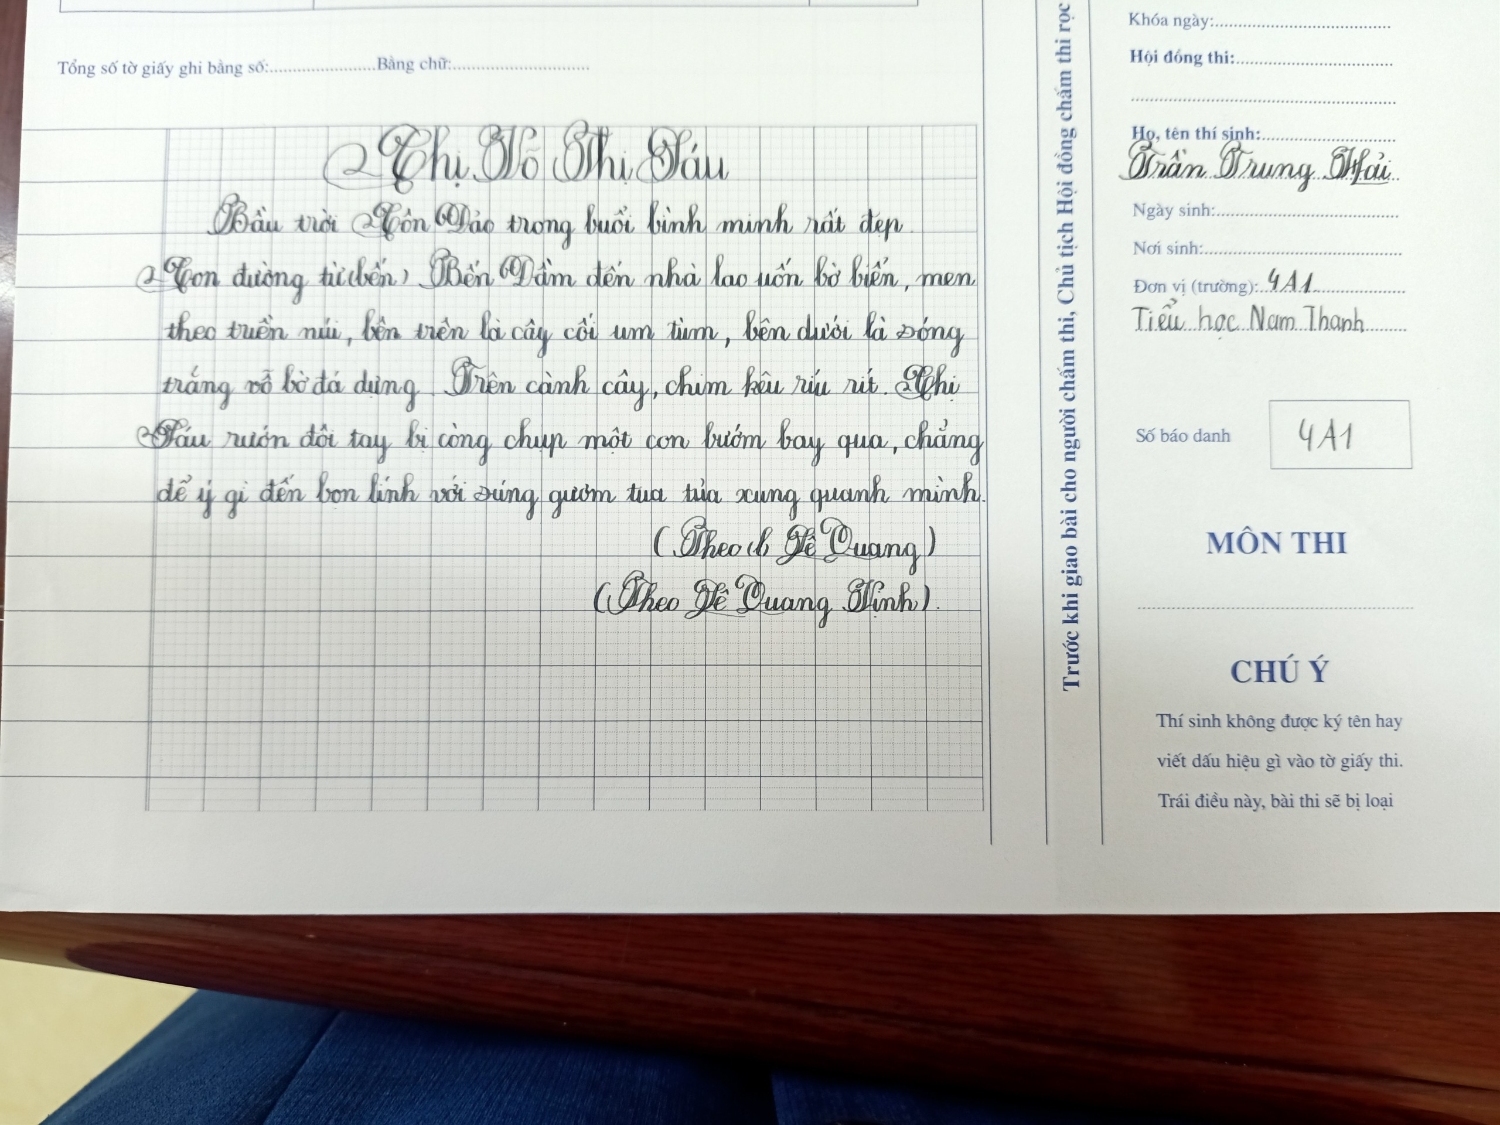 Tổng số tờ giấy ghi bằng số:.....................Bằng chữ:...........................
Chị Võ Thị Sáu
Bầu trời Côn Đảo trong buổi bình minh rất đẹp.
Con đường từ (bến) Bến Đầm đến nhà lao uốn bờ biển, men
theo triền núi, bên trên là cây cối um tùm, bên dưới là sóng
trắng vỗ bờ đá dựng. Trên cành cây, chim kêu ríu rít. Chị
Sáu rướn đôi tay bị còng chụp một con bướm bay qua, chẳng
để ý gì đến bọn lính với súng gươm tua tủa xung quanh mình.
(Theo Lê Quang)
(Theo Lê Quang Vịnh).
Trước khi giao bài cho người chấm thi, Chủ tịch Hội đồng chấm thi rọc
Khóa ngày:...................................
Hội đồng thi:...............................
.....................................................
Họ, tên thí sinh:...........................
Trần Trung Hải
Ngày sinh:....................................
Nơi sinh:.......................................
Đơn vị (trường): 4A1
Tiểu học Nam Thanh
Số báo danh
4A1
MÔN THI
.....................................................
CHÚ Ý
Thí sinh không được ký tên hay
viết dấu hiệu gì vào tờ giấy thi.
Trái điều này, bài thi sẽ bị loại